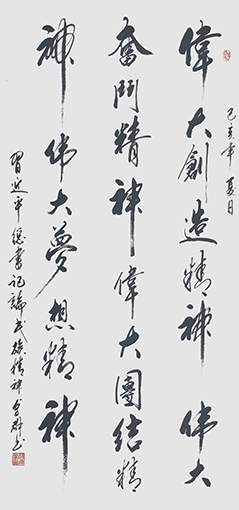 己亥年夏日
偉大創造精神偉大
奮鬥精神偉大團结精
神偉大夢想精神
習近平總書記論民族精神